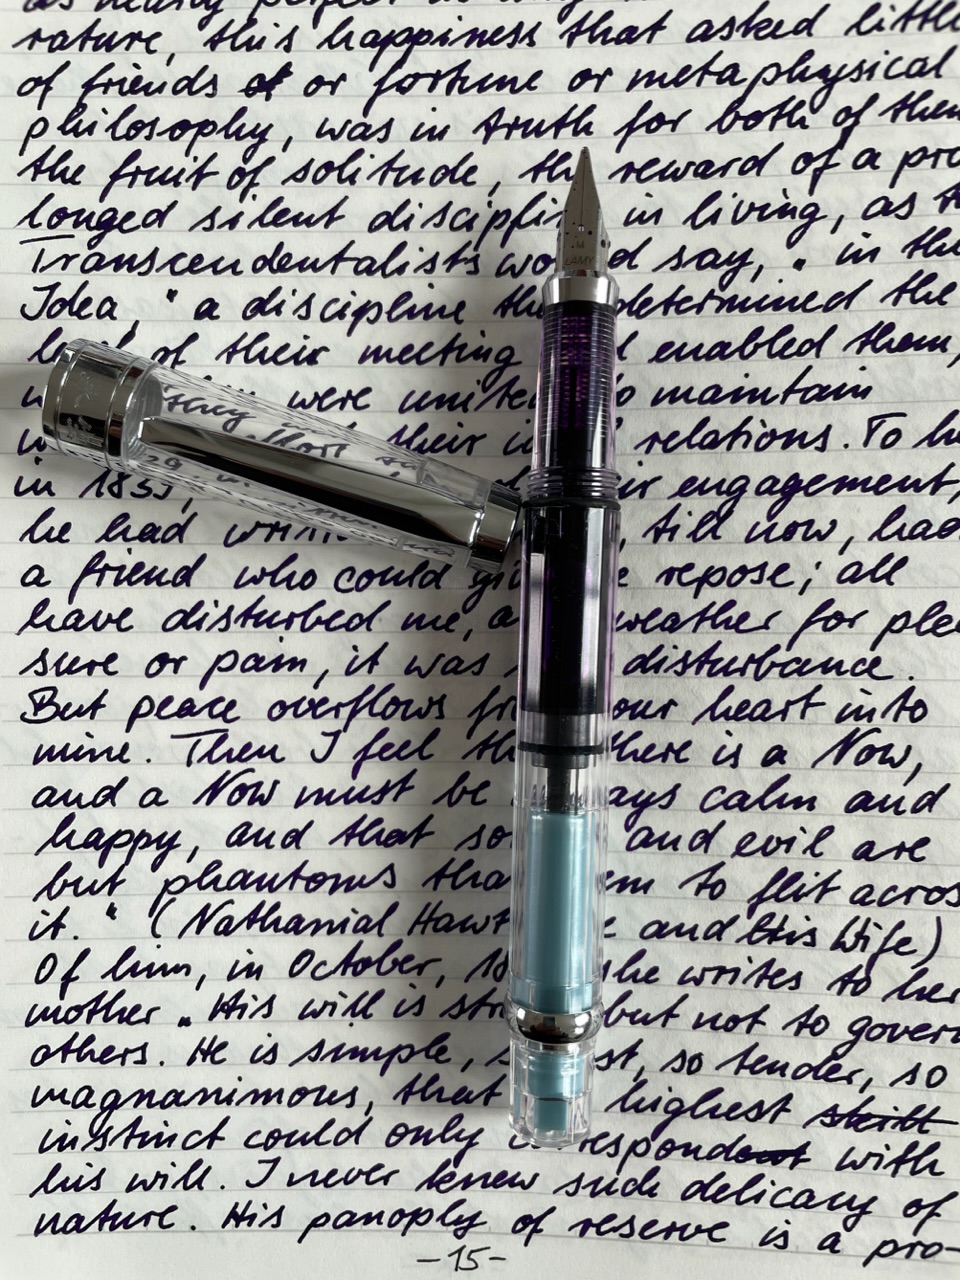 as nearly perfect as
rature, this happiness that asked little
of friends or or fortune or metaphysical
philosophy, was in truth for both of them
the fruit of solitude, the reward of a pro
longed silent discipline in living, as
Transcendentalists would say, „ in the
Idea, " a discipline determined the
of their meeting enabled them,
were united to maintain
their relations. To
in 1839, their engagement,
he had till now, had
a friend who could repose; all
have disturbed me, weather for plea
sure or pain, it was disturbance.
But peace overflows from your heart into
mine. Then I feel there is a Now,
and a Now must be always calm and
happy, and that and evil are
but phantoms that seem to flit across
it. " (Nathanial Hawthorne and His Wife)
Of him, in October, she writes to her
mother „ His will is but not to govern
others. He is simple, so tender, so
magnanimous, that highest skill
instinct could only correspondent with
his will. I never knew such delicacy of
nature. His panoply of reserve is a pro-
-15-
M
LAMY